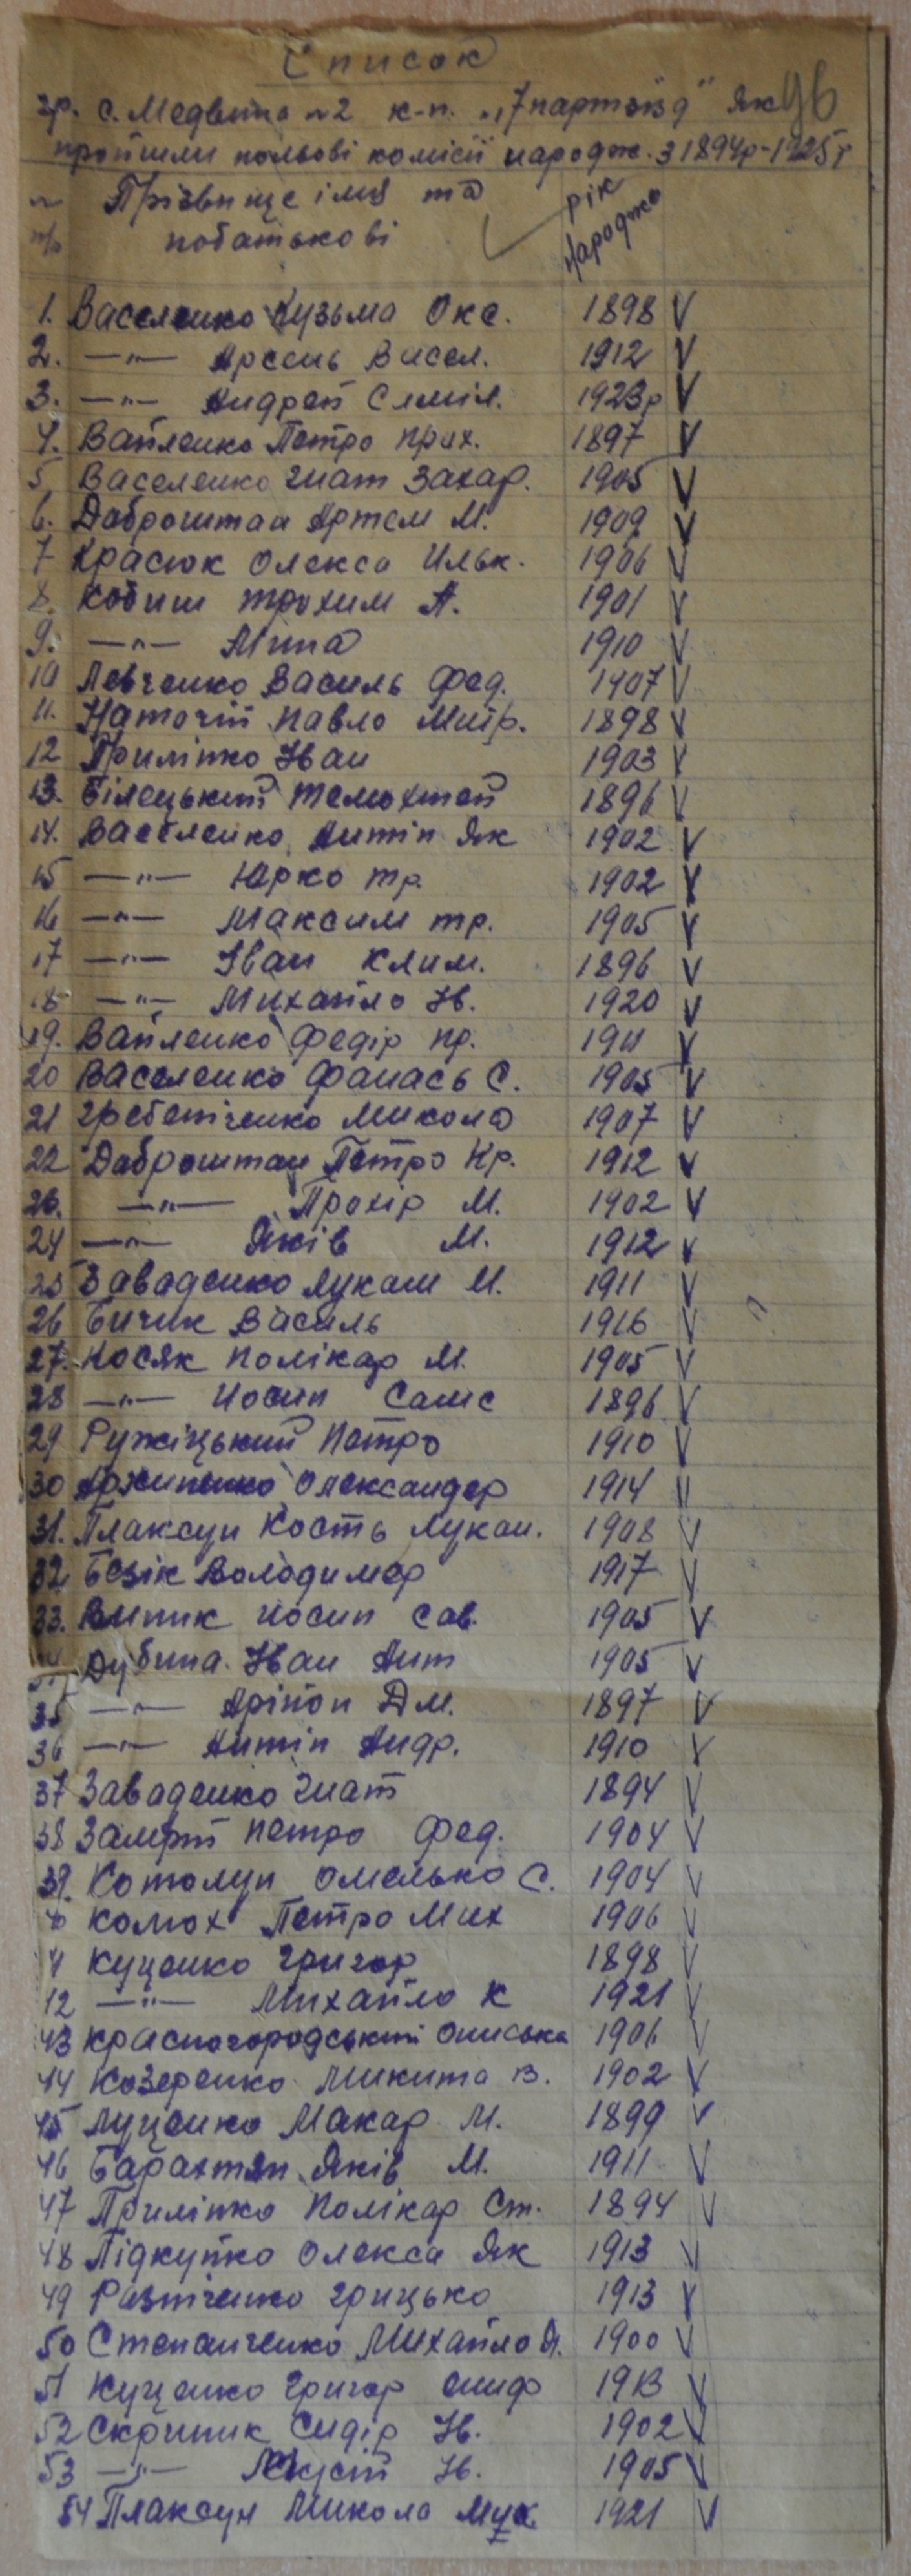 Список
гр. с. Медвина №2 к-п. „17 партзїзд" як 96
пройшли польові комісії народж. з 1894р-1925р
№ п/р Прізвище імя та побатькові рік народже
1. Васеленко Кузьма Окс. 1898 V
2. —"— Арсень Висел. 1912 V
3. —"— Андрей Семіл. 1923р V
4. Вайленко Петро Прих. 1897 V
5 Васеленко Гнат Захар. 1905 V
6. Даброштан Артем М. 1909 V
7 Красюк Олекса Ильк. 1906 V
8. Кобиш Трохим А. 1901 V
9. —"— Мина 1910 V
10 Левченко Василь Фед. 1907 V
11. Наточій Павло Митр. 1898 V
12 Приліпко Іван 1903 V
13. Білецький Темохтей 1896 V
14. Васеленко Антіп Як 1902 V
15 —"— Юрко тр. 1902 V
16 —"— Максим тр. 1905 V
17 —"— Іван Клим. 1896 V
18 —"— Михайло Ів. 1920 V
19. Вайленко Федір пр. 1911 V
20 Васеленко Фанась С. 1905 V
21 Гребеніченко Микола 1907 V
22 Даброштан Петро Кр. 1912 V
23. —"— Прохір М. 1902 V
24 —"— Яків М. 1912 V
25 Заваденко Лукаш М. 1911 V
26 Бичик Василь 1916 V
27. Носяк Полікар М. 1905 V
28 —"— Иосип Самс 1896 V
29 Ружіцький Петро 1910 V
30 Архипенко Олександер 1914 V
31. Плаксун Кость Лукаш. 1908 V
32 Безік Володимер 1917 V
33. Випик Иосип Сав. 1905 V
34 Дубина Іван Ант 1905 V
35 —"— Аріпон Дм. 1897 V
36 —"— Антіп Андр. 1910 V
37 Заваденко Гнат 1894 V
38 Замрій Петро Фед. 1904 V
39. Котолуп Омелько С. 1904 V
40 Колюх Петро Мих 1906 V
41 Куценко Григор 1898 V
42 —"— Михайло К 1921 V
43 Красногородський Ониська 1906 V
44 Козеренко Микита В. 1902 V
45 Луценко Макар М. 1899 V
46 Барахтян Яків М. 1911 V
47 Приліпко Полікар Ст. 1894 V
48 Підкуйко Олекса Як 1913 V
49 Разніченко Грицько 1913 V
50 Степанченко Михайло Я. 1900 V
51 Куценко Григор Ониф 1913 V
52 Скрипик Сидір Ів. 1902 V
53 —"— Ів. 1905 V
54 Плаксун Микола Мук. 1921 V